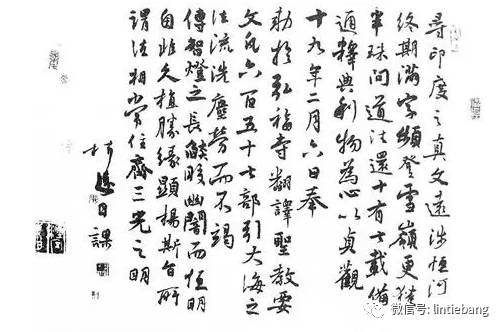 尋印度之真文遠涉恒河
終期滿字頻登雪嶺更獲
半珠問道法還十有七載備
通釋典利物為心以貞觀
十九年二月六日奉
勅於弘福寺翻譯聖教要
文凡六百五十七部引大海之
法流洗塵勞而不竭
傳智燈之長焰皎幽闇而恒明
自非久植勝緣顯揚斯旨所
謂法相常住齊三光之明
日課
微信号: lintiebang